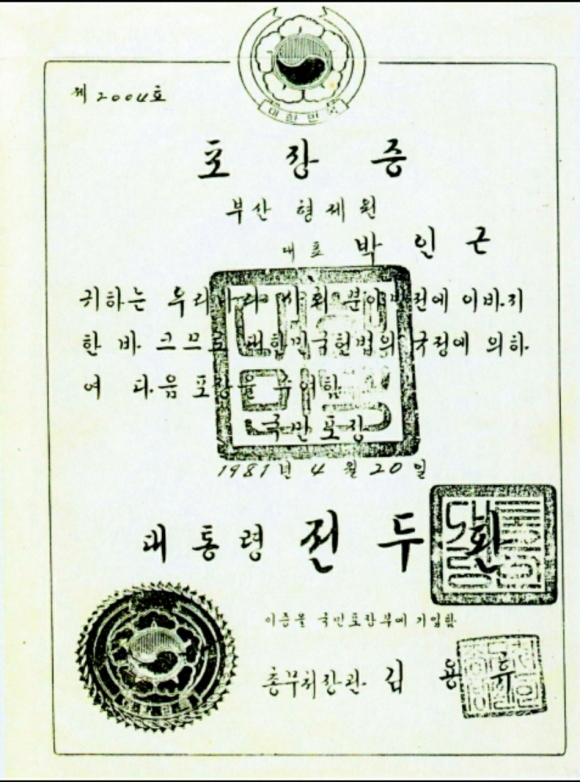 대한민국
제 2004호
포장증
부산 형제원
대표 박인근
귀하는 우리나라 사회 분야발전에 이바지
한 바 크므로 대한민국헌법의 규정에 의하
여 다음 포장을 수여함
국민포장
1981년 4월 20일
대통령 전두환
이증을 국민포장부에 기입함
총무처장관 김용휴